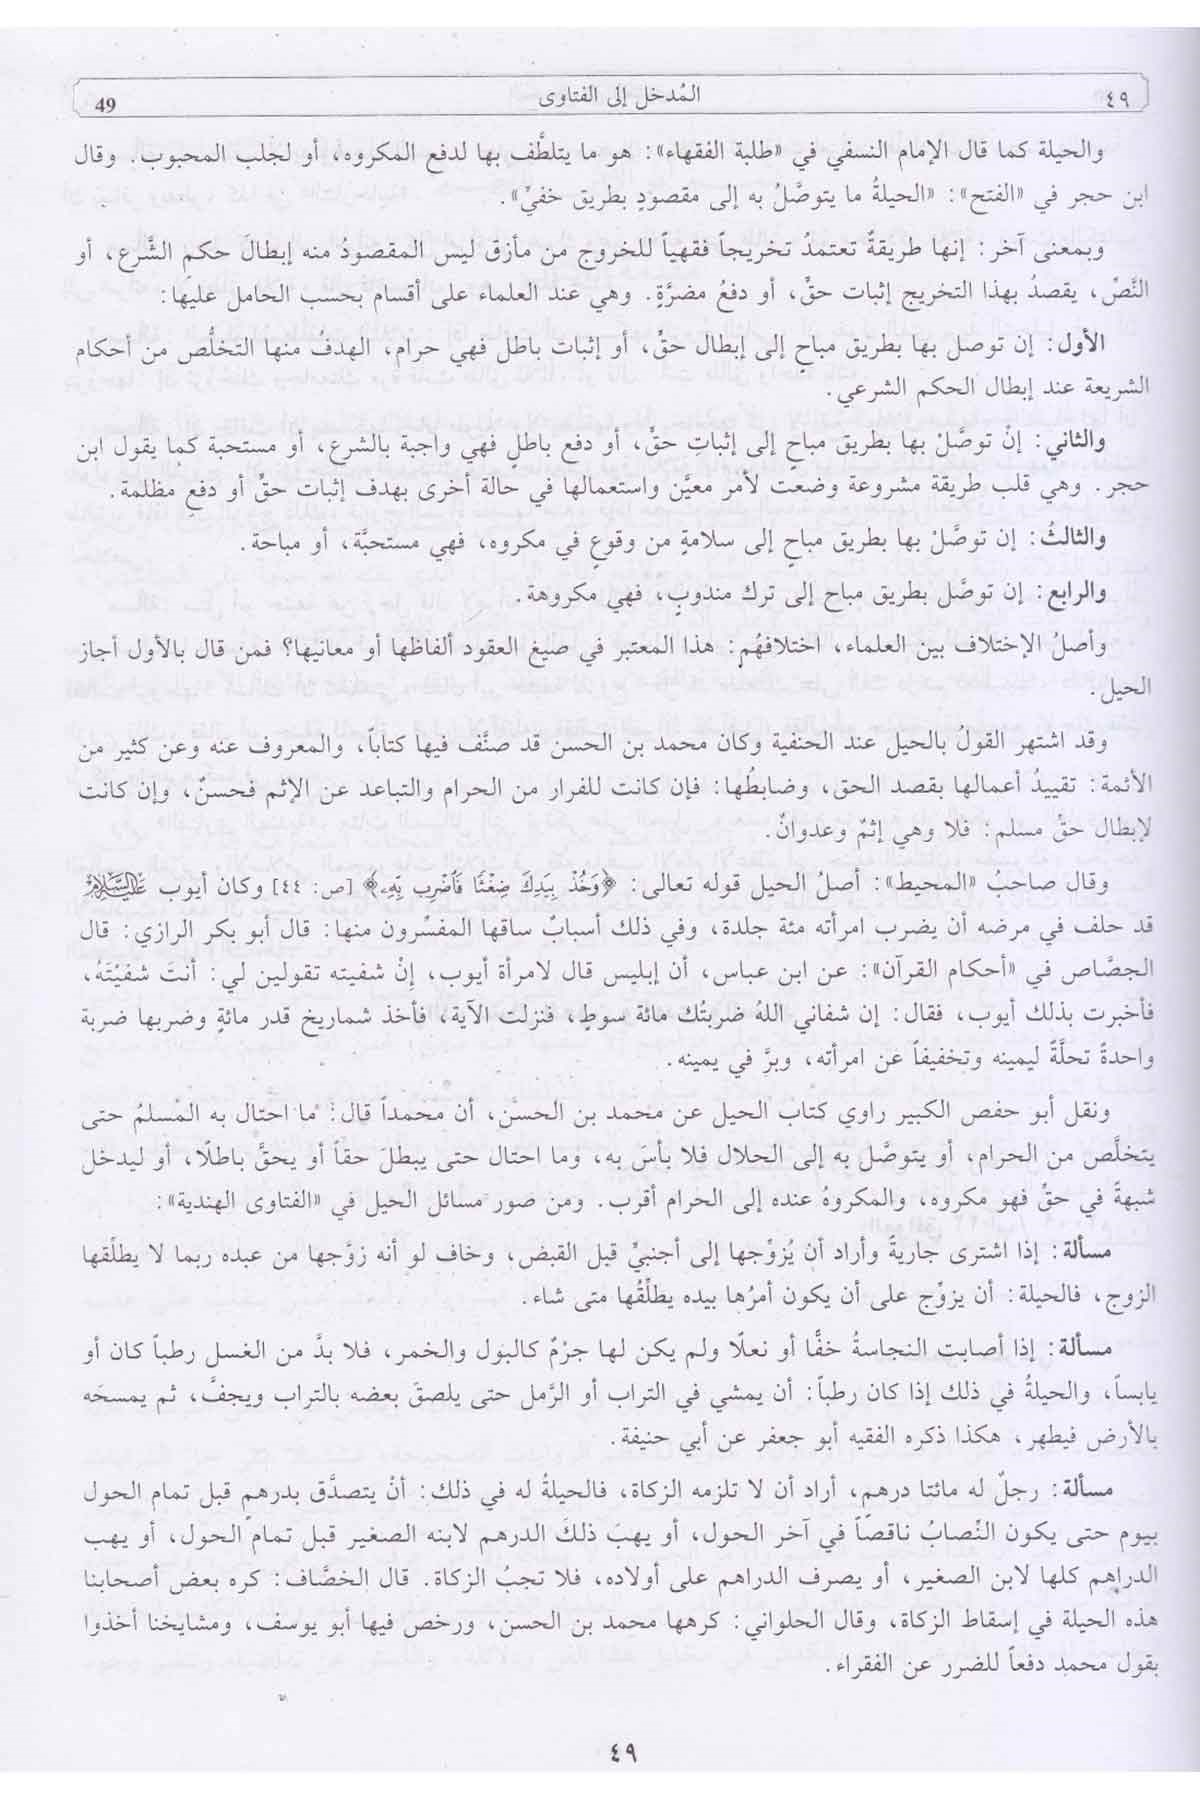 ٤٩ المُدخل إلى الفتاوى 49
والحيلة كما قال الإمام النسفي في «طلبة الفقهاء»: هو ما يتلطَّف بها لدفع المكروه، أو لجلب المحبوب. وقال
ابن حجر في «الفتح»: «الحيلةُ ما يتوصَّلُ به إلى مقصودٍ بطريق خفيِّ».
وبمعنى آخر: إنها طريقةٌ تعتمدُ تخريجاً فقهياً للخروج من مأزق ليس المقصودُ منه إبطالَ حكم الشَّرع، أو
النَّصِّ، يقصدُ بهذا التخريج إثبات حقٍّ، أو دفعُ مضرَّةٍ. وهي عند العلماء على أقسام بحسب الحامل عليها:
الأول: إن توصل بها بطريق مباحٍ إلى إبطال حقٍّ، أو إثبات باطل فهي حرام، الهدفُ منها التخلُّص من أحكام
الشريعة عند إبطال الحكم الشرعي.
والثاني: إنْ توصَّلُ بها بطريق مباحٍ إلى إثباتِ حقٍّ، أو دفع باطل فهي واجبة بالشرع، أو مستحبة كما يقول ابن
حجر. وهي قلب طريقة مشروعة وضعت لأمر معيَّن واستعمالها في حالة أخرى بهدف إثبات حقٍّ أو دفعِ مظلمة.
والثالثُ: إن توصَّلْ بها بطريق مباحٍ إلى سلامةٍ من وقوعٍ في مكروه، فهي مستحبَّة، أو مباحة.
والرابع: إن توصَّل بطريق مباح إلى ترك مندوبٍ، فهي مكروهة.
وأصلُ الإختلاف بين العلماء، اختلافهُم: هذا المعتبر في صيغ العقود ألفاظها أو معانيها؟ فمن قال بالأول أجاز
الحيل.
وقد اشتهر القولُ بالحيل عند الحنفية وكان محمد بن الحسن قد صنَّف فيها كتاباً، والمعروف عنه وعن كثير من
الأئمة: تقييدُ أعمالها بقصد الحق، وضابطُها: فإن كانت للفرار من الحرام والتباعد عن الإثم فحسنٌ، وإن كانت
لإبطال حقِّ مسلم: فلا وهي إثمٌ وعدوانٌ.
وقال صاحبُ «المحيط»: أصلُ الحيل قوله تعالى: ﴿وَخُذْ بِيَدِكَ ضِغْثًا فَاضْرِب بِّهِ﴾ [ص: ٤٤] وكان أيوب عليه السلام
قد حلف في مرضه أن يضرب امرأته مئة جلدة، وفي ذلك أسبابٌ ساقها المفسِّرون منها: قال أبو بكر الرازي: قال
الجصَّاص في «أحكام القرآن»: عن ابن عباس، أن إبليس قال لامرأة أيوب، إنْ شفيته تقولين لي: أنتَ شفيْتَهُ،
فأخبرت بذلك أيوب، فقال: إن شفاني اللهُ ضربتُك مائة سوطٍ، فنزلت الآية، فأخذ شماريخ قدر مائةٍ وضربها ضربة
واحدةً تحلَّةً ليمينه وتخفيفاً عن امرأته، وبرَّ في يمينه.
ونقل أبو حفص الكبير راوي كتاب الحيل عن محمد بن الحسن، أن محمداً قال: ما احتال به المُسلمُ حتى
يتخلَّص من الحرام، أو يتوصَّل به إلى الحلال فلا بأسَ به، وما احتال حتى يبطلَ حقاً أو يحقَّ باطلًا، أو ليدخل
شبهةً في حقٍّ فهو مكروه، والمكروهُ عنده إلى الحرام أقرب. ومن صور مسائل الحيل في «الفتاوى الهندية»:
مسألة: إذا اشترى جاريةً وأراد أن يُزوِّجها إلى أجنبيٍّ قبل القبض، وخاف لو أنه زوَّجها من عبده ربما لا يطلِّقها
الزوج، فالحيلة: أن يزوِّج على أن يكون أمرُها بيده يطلِّقُها متى شاء.
مسألة: إذا أصابت النجاسةُ خفًّا أو نعلًا ولم يكن لها جرْمٌ كالبول والخمر، فلا بدَّ من الغسل رطباً كان أو
يابساً، والحيلةُ في ذلك إذا كان رطباً: أن يمشي في التراب أو الرَّمل حتى يلصقَ بعضه بالتراب ويجفَّ، ثم يمسحَه
بالأرض فيطهر، هكذا ذكره الفقيه أبو جعفر عن أبي حنيفة.
مسألة: رجلٌ له مائتا درهمٍ، أراد أن لا تلزمه الزكاة، فالحيلةُ له في ذلك: أنْ يتصدَّق بدرهمٍ قبل تمام الحول
بيوم حتى يكون النِّصابُ ناقصاً في آخر الحول، أو يهبَ ذلكَ الدرهم لابنه الصغير قبل تمام الحول، أو يهب
الدراهم كلها لابن الصغير، أو يصرف الدراهم على أولاده، فلا تجبُ الزكاة. قال الخصَّاف: كره بعض أصحابنا
هذه الحيلة في إسقاط الزكاة، وقال الحلواني: كرهها محمد بن الحسن، ورخص فيها أبو يوسف، ومشايخنا أخذوا
بقول محمد دفعاً للضرر عن الفقراء.
٤٩